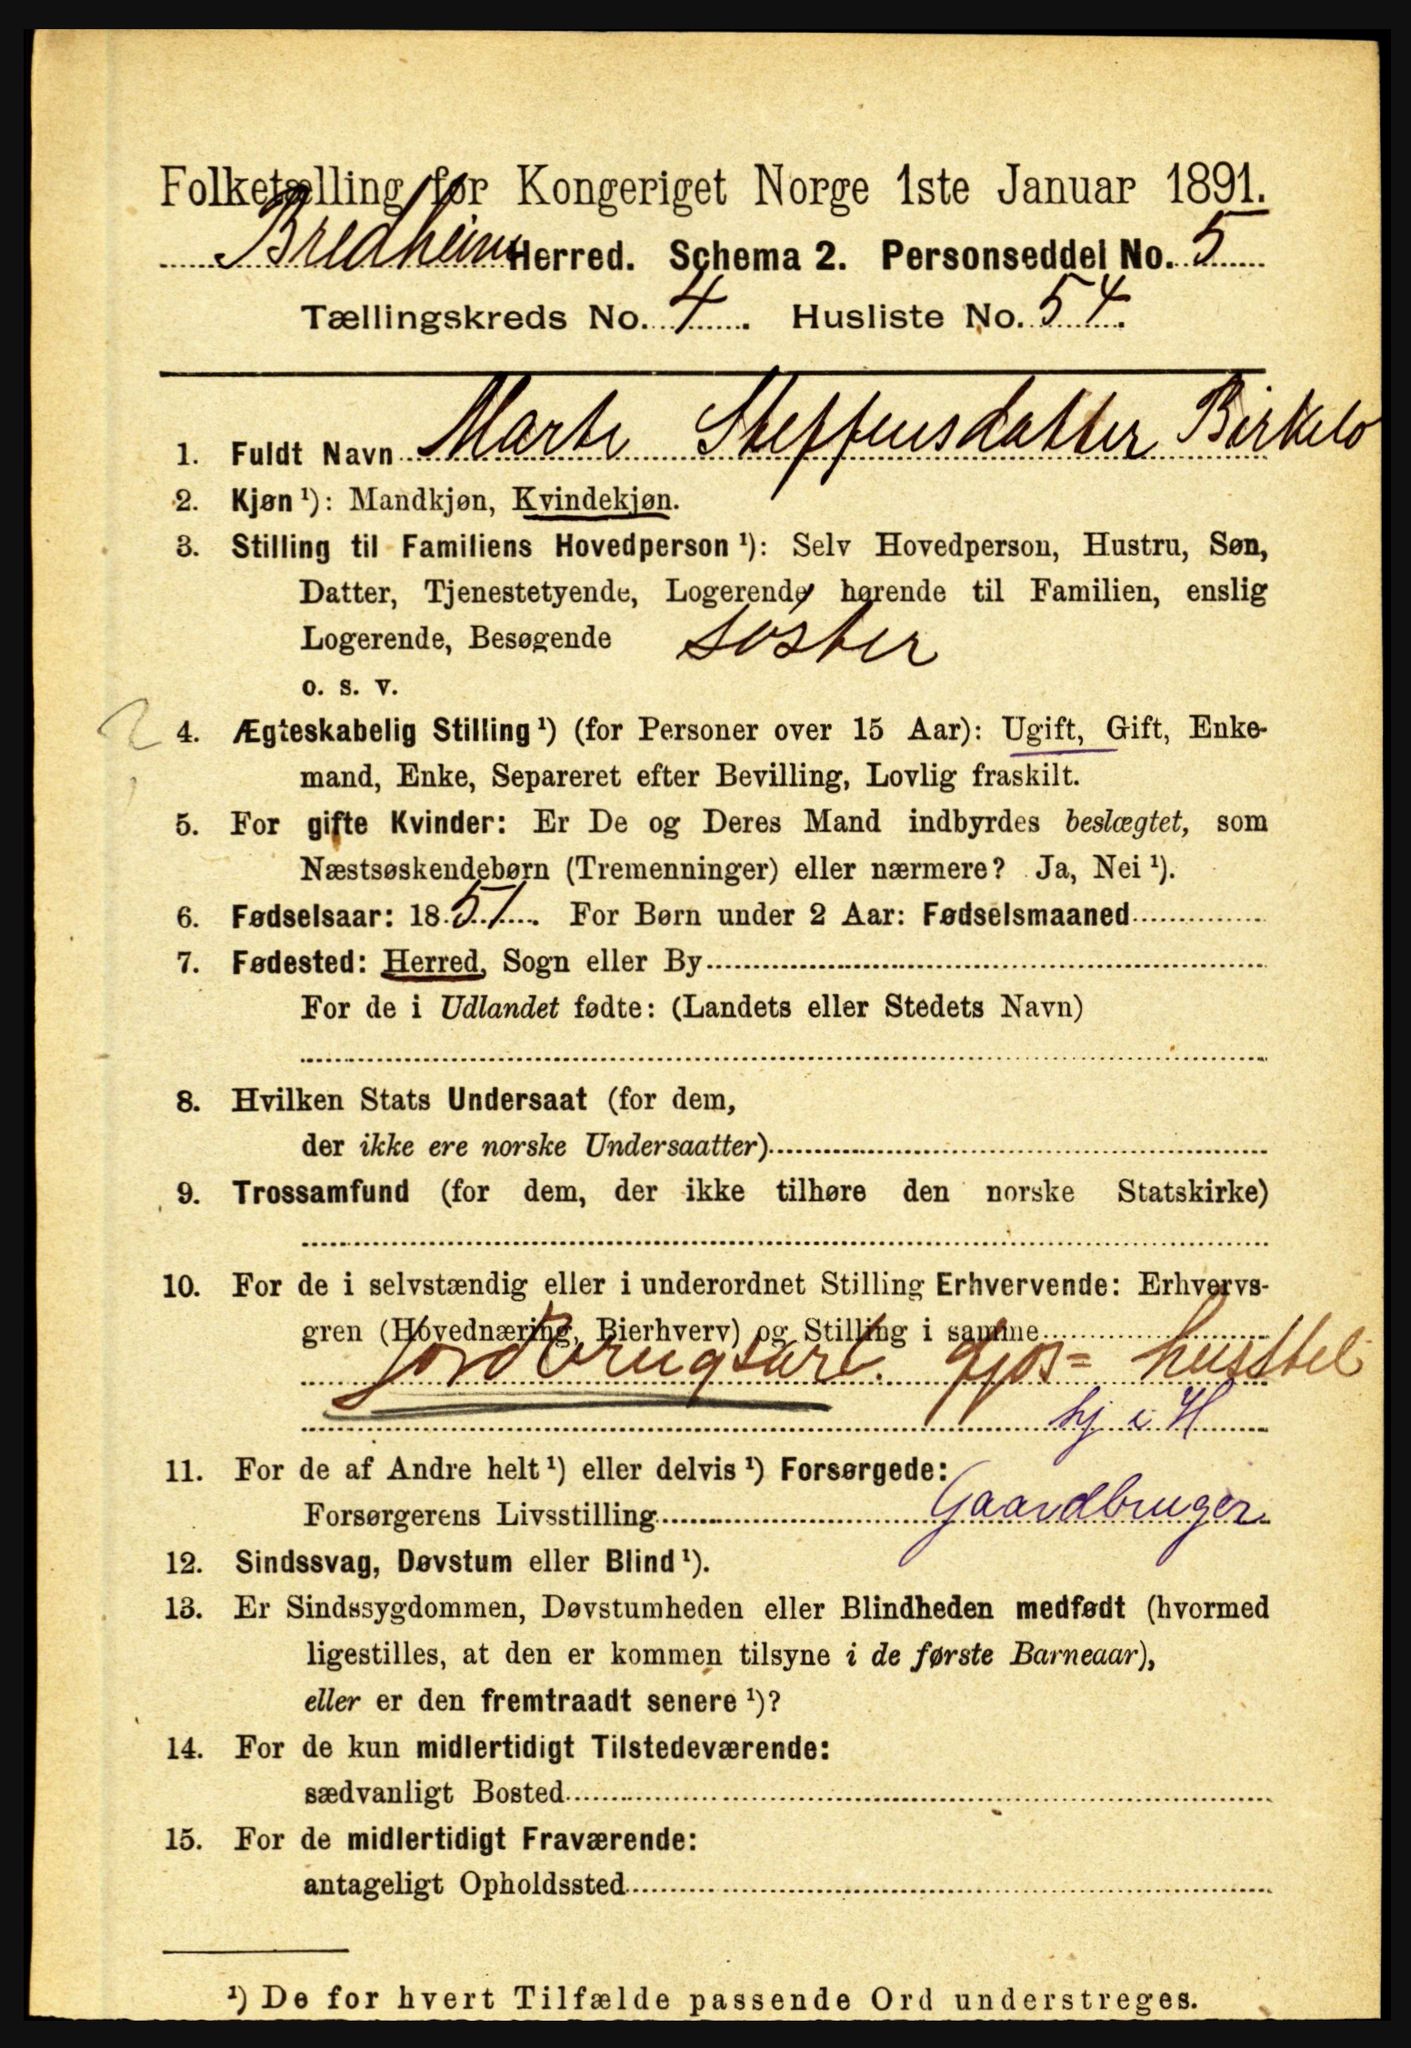 Folketælling for Kongeriget Norge 1ste Januar 1891.
Bredheim Herred. Schema 2. Personseddel No. 5
Tællingskreds No. 4. Husliste No. 54.
1. Fuldt Navn Marte Steffensdatter Birkelo
2. Kjøn ¹): Mandkjøn, Kvindekjøn.
3. Stilling til Familiens Hovedperson ¹): Selv Hovedperson, Hustru, Søn,
Datter, Tjenestetyende, Logerende hørende til Familien, enslig
Logerende, Besøgende Søster
o. s. v.
4. Ægteskabelig Stilling ¹) (for Personer over 15 Aar): Ugift, Gift, Enke-
mand, Enke, Separeret efter Bevilling, Lovlig fraskilt.
5. For gifte Kvinder: Er De og Deres Mand indbyrdes beslægtet, som
Næstsøskendebørn (Tremenninger) eller nærmere? Ja, Nei ¹).
6. Fødselsaar: 1851. For Børn under 2 Aar: Fødselsmaaned
7. Fødested: Herred, Sogn eller By
For de i Udlandet fødte: (Landets eller Stedets Navn)
8. Hvilken Stats Undersaat (for dem,
der ikke ere norske Undersaatter)
9. Trossamfund (for dem, der ikke tilhøre den norske Statskirke)
10. For de i selvstændig eller i underordnet Stilling Erhvervende: Erhvervs-
gren (Hovednæring, Bierhverv) og Stilling i samme
Jordbrugsarb. Fjøs= husstel
hj i H
11. For de af Andre helt ¹) eller delvis ¹) Forsørgede:
Forsørgerens Livsstilling Gaardbruger
12. Sindssvag, Døvstum eller Blind ¹).
13. Er Sindssygdommen, Døvstumheden eller Blindheden medfødt (hvormed
ligestilles, at den er kommen tilsyne i de første Barneaar),
eller er den fremtraadt senere ¹)?
14. For de kun midlertidigt Tilstedeværende:
sædvanligt Bosted
15. For de midlertidigt Fraværende:
antageligt Opholdssted
¹) De for hvert Tilfælde passende Ord understreges.